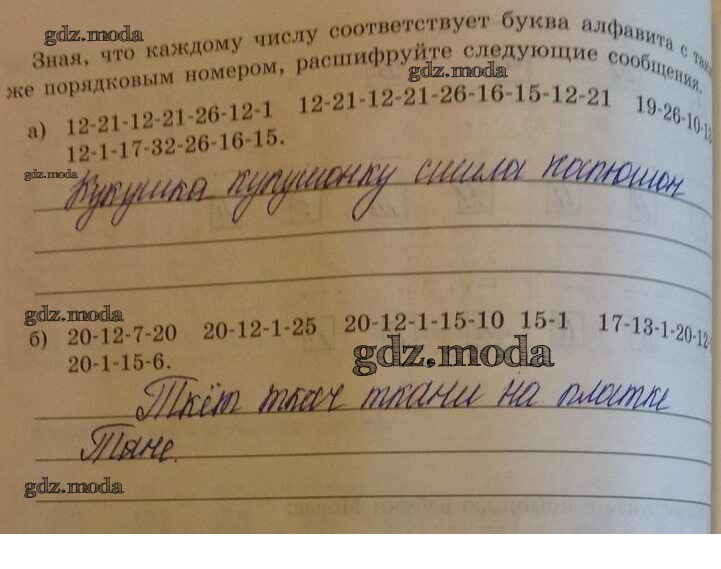 gdz.moda
Зная, что каждому числу соответствует буква алфавита с так
же порядковым номером, расшифруйте следующие сообщения.
gdz.moda
а) 12-21-12-21-26-12-1 12-21-12-21-26-16-15-12-21 19-26-10-13
12-1-17-32-26-16-15.
gdz.moda
Кукушка купушонку сшила капюшон
gdz.moda
б) 20-12-7-20 20-12-1-25 20-12-1-15-10 15-1 17-13-1-20-12-
20-1-15-6.
gdz.moda
Ткёт ткач ткани на платке
Тане.
gdz.moda